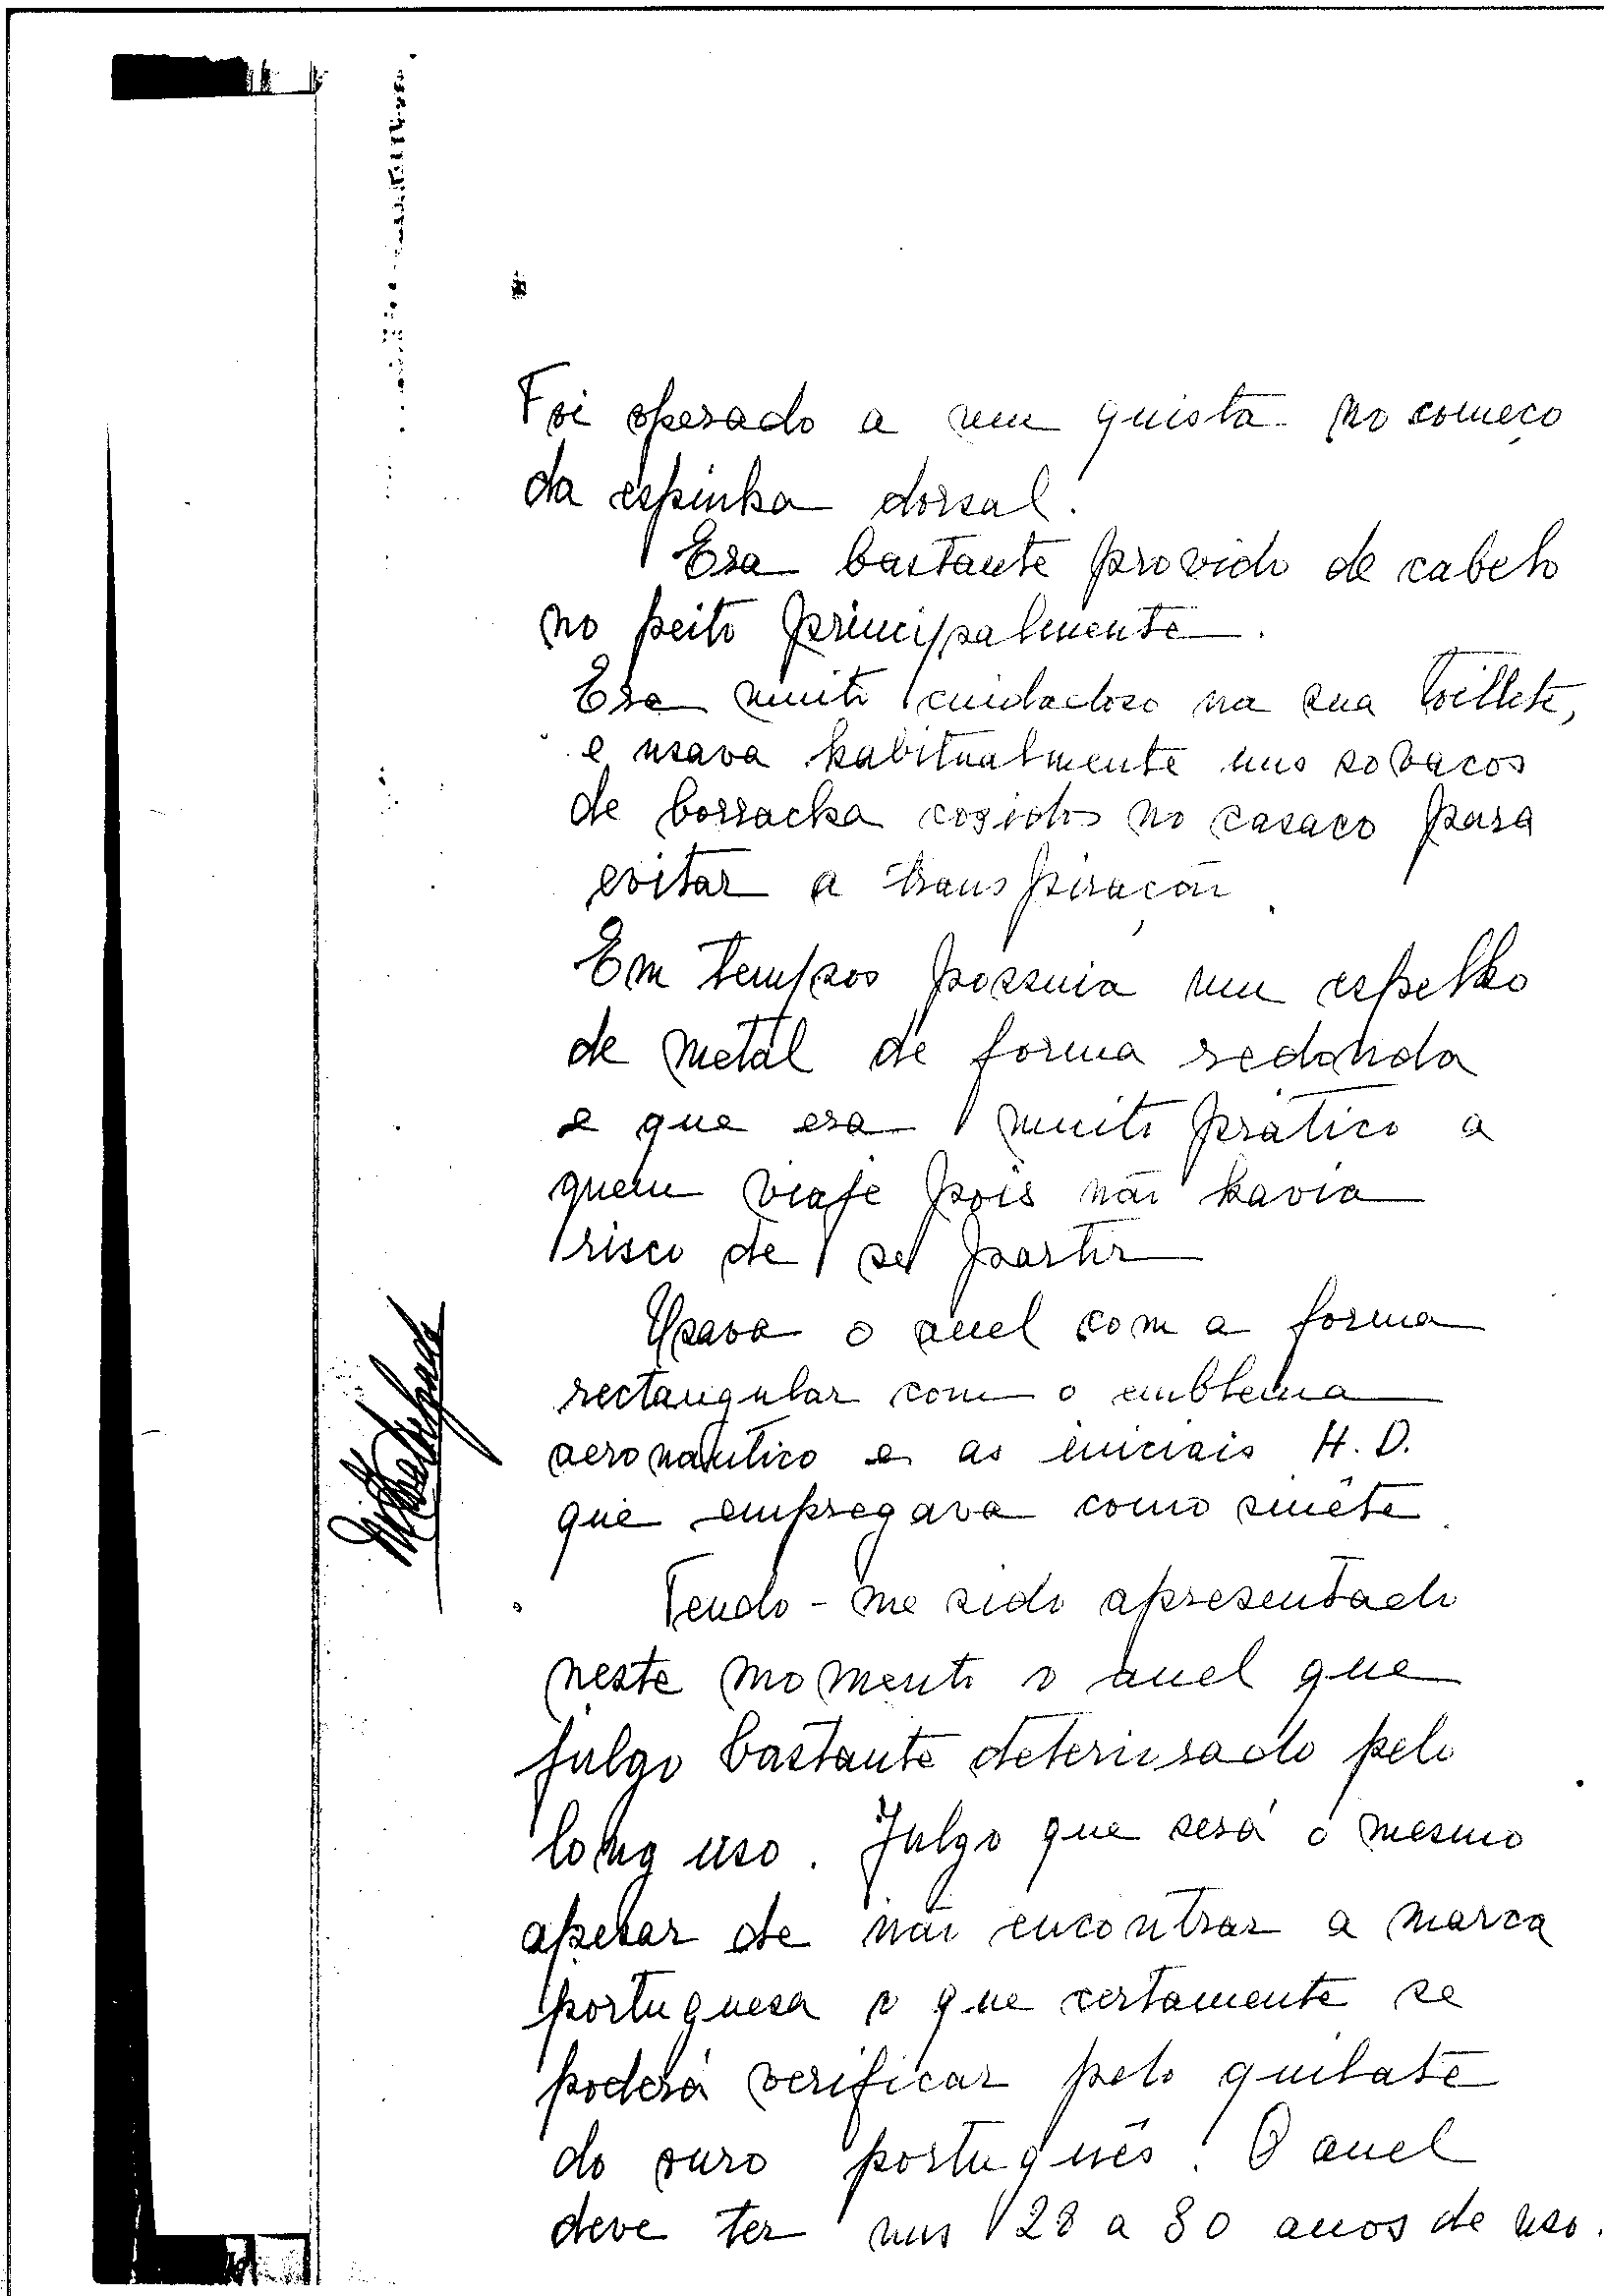 Foi operado a um quisto no começo
da espinha dorsal.
Era bastante provido de cabelo
no peito principalmente.
Era muito cuidadoso na sua toillete,
e usava habitualmente uns sovacos
de borracha cosidos no casaco para
evitar a transpiração.
Em tempos possuia um espelho
de metal de forma redonda
e que era muito prático a
quem viaje pois não havia
risco de se partir
Usava o anel com a forma
rectangular com o emblema
aeronáutico e as iniciais H. D.
que empregava como sinête.
Tendo-me sido apresentado
neste momento o anel que
julgo bastante deteriorado pelo
longo uso. Julgo que será o mesmo
apesar de não encontrar a marca
portuguesa o que certamente se
poderá verificar pelo quilate
do ouro português. O anel
deve ter uns 28 a 30 anos de uso.